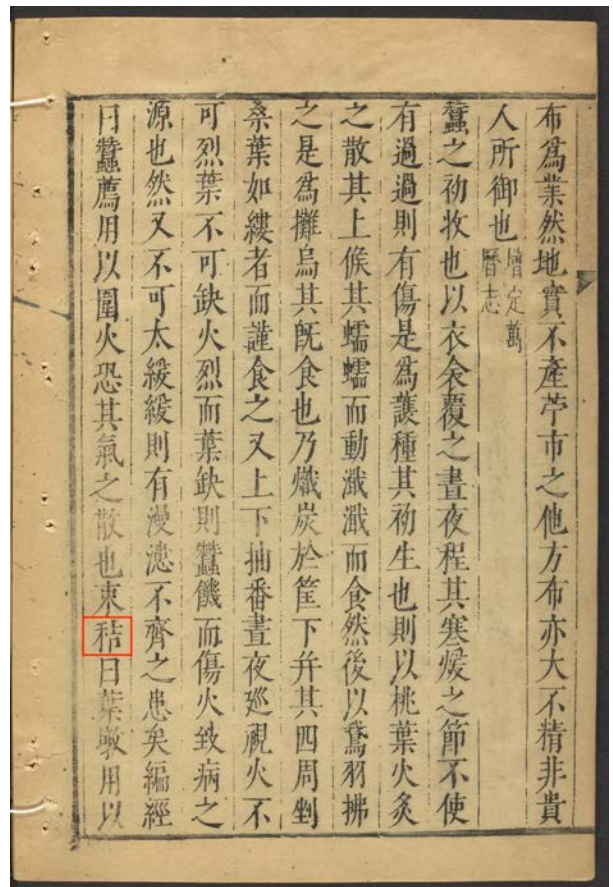 布爲業然地實不產苧市之他方布亦大不精非貴
人所御也嘉定萬
曆志
蠶之初收也以衣衾覆之晝夜程其寒煖之節不使
有過過則有傷是爲護種其初生也則以桃葉火炙
之散其上候其蠕蠕而動濈濈而食然後以鵞羽拂
之是爲攤烏其旣食也乃熾炭於筐下并其四周剉
桑葉如縷者而謹食之又上下抽番晝夜廵視火不
可烈葉不可缺火烈而葉缺則蠶饑而傷火致病之
源也然又不可太緩緩則有漫漶不齊之患矣編經
曰蠶薦用以圍火恐其氣之散也束秸曰葉墩用以